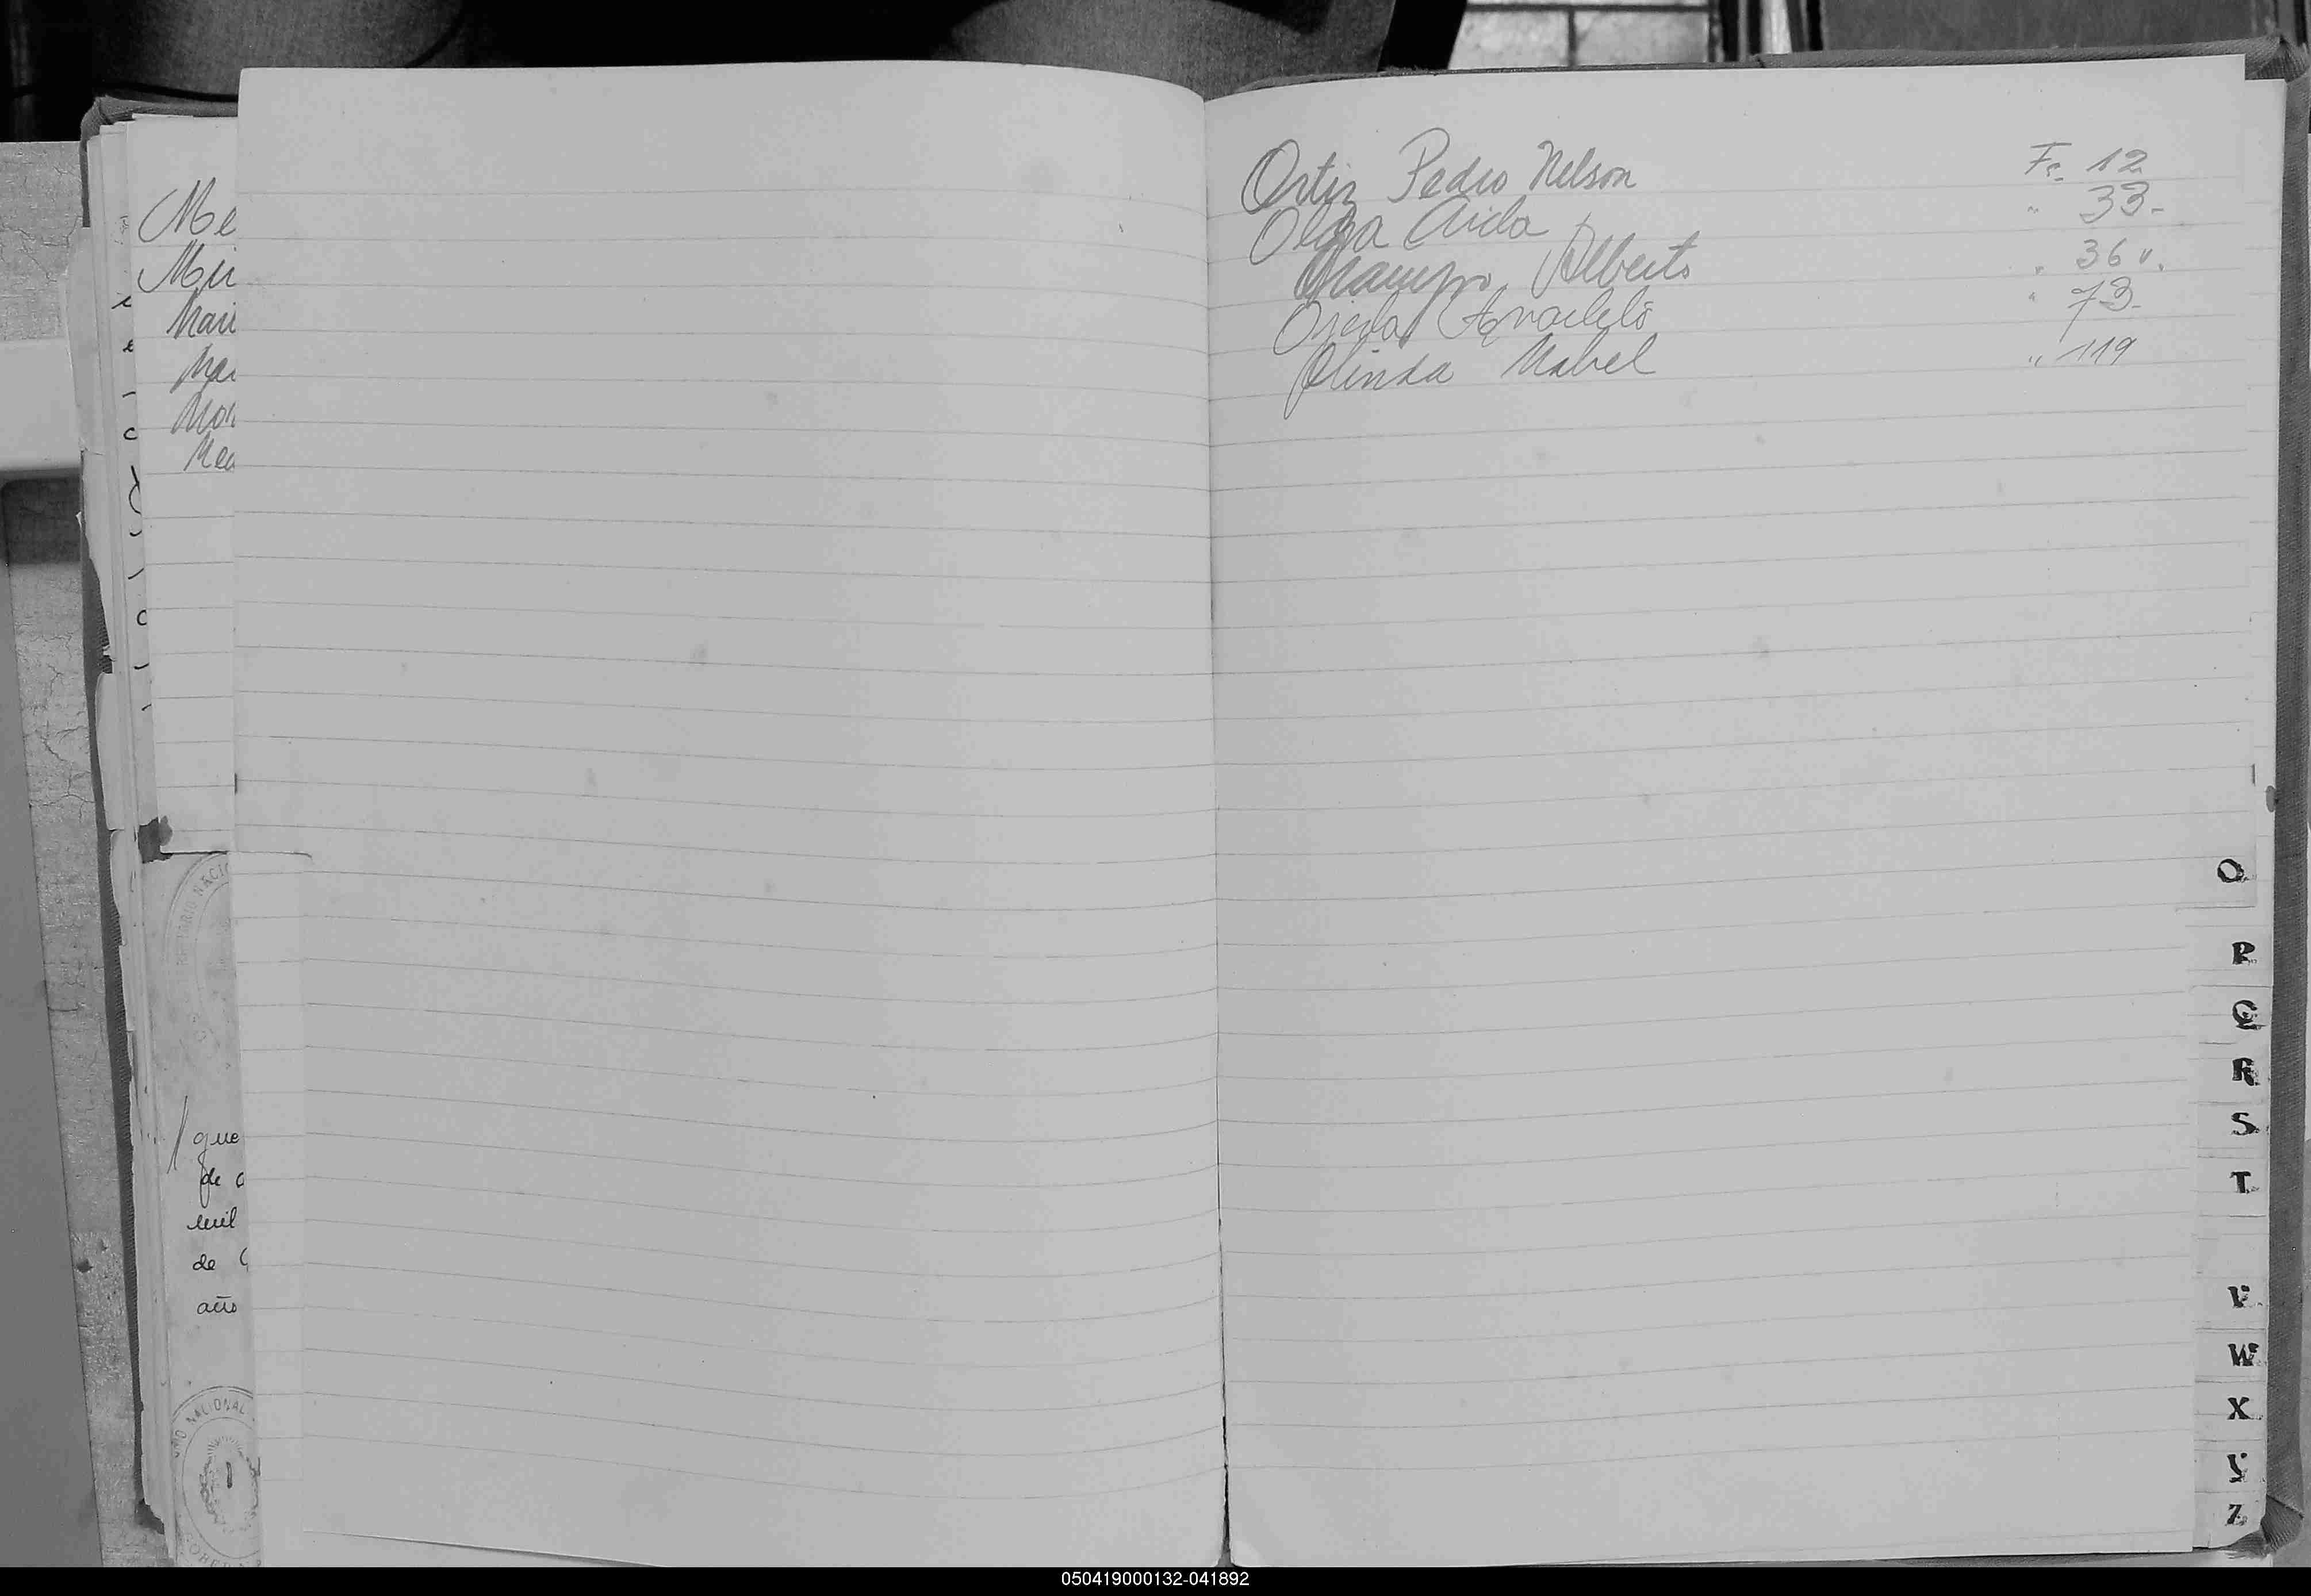 Me
Mir
Mari
Mar
Mor
Mea
NACIO
que
de a
mil
de
año
NACIONAL
Ortiz Pedro Nelson Fs. 12
Olga Aida " 33-
Ocampo Alberto " 36 v.
Ojeda " 73-
Olinda Mabel " 119
O
P
Q
R
S
T
V
W
X
Y
Z
050419000132-041892